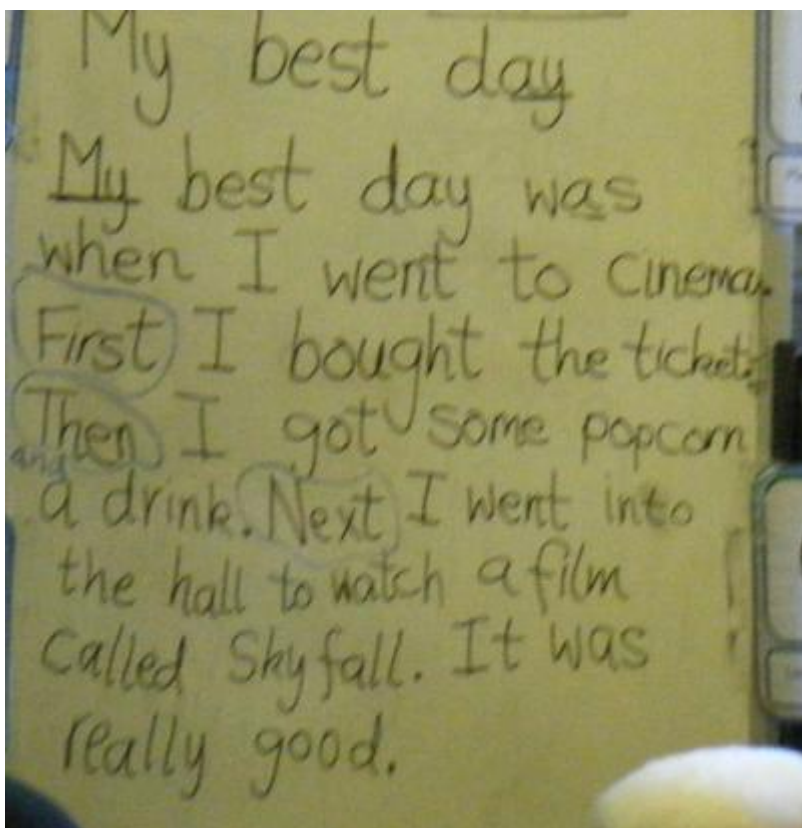 My best day
My best day was
when I went to cinema.
First I bought the ticket.
Then I got some popcorn
and
a drink. Next I went into
the hall to watch a film
called Skyfall. It was
really good.